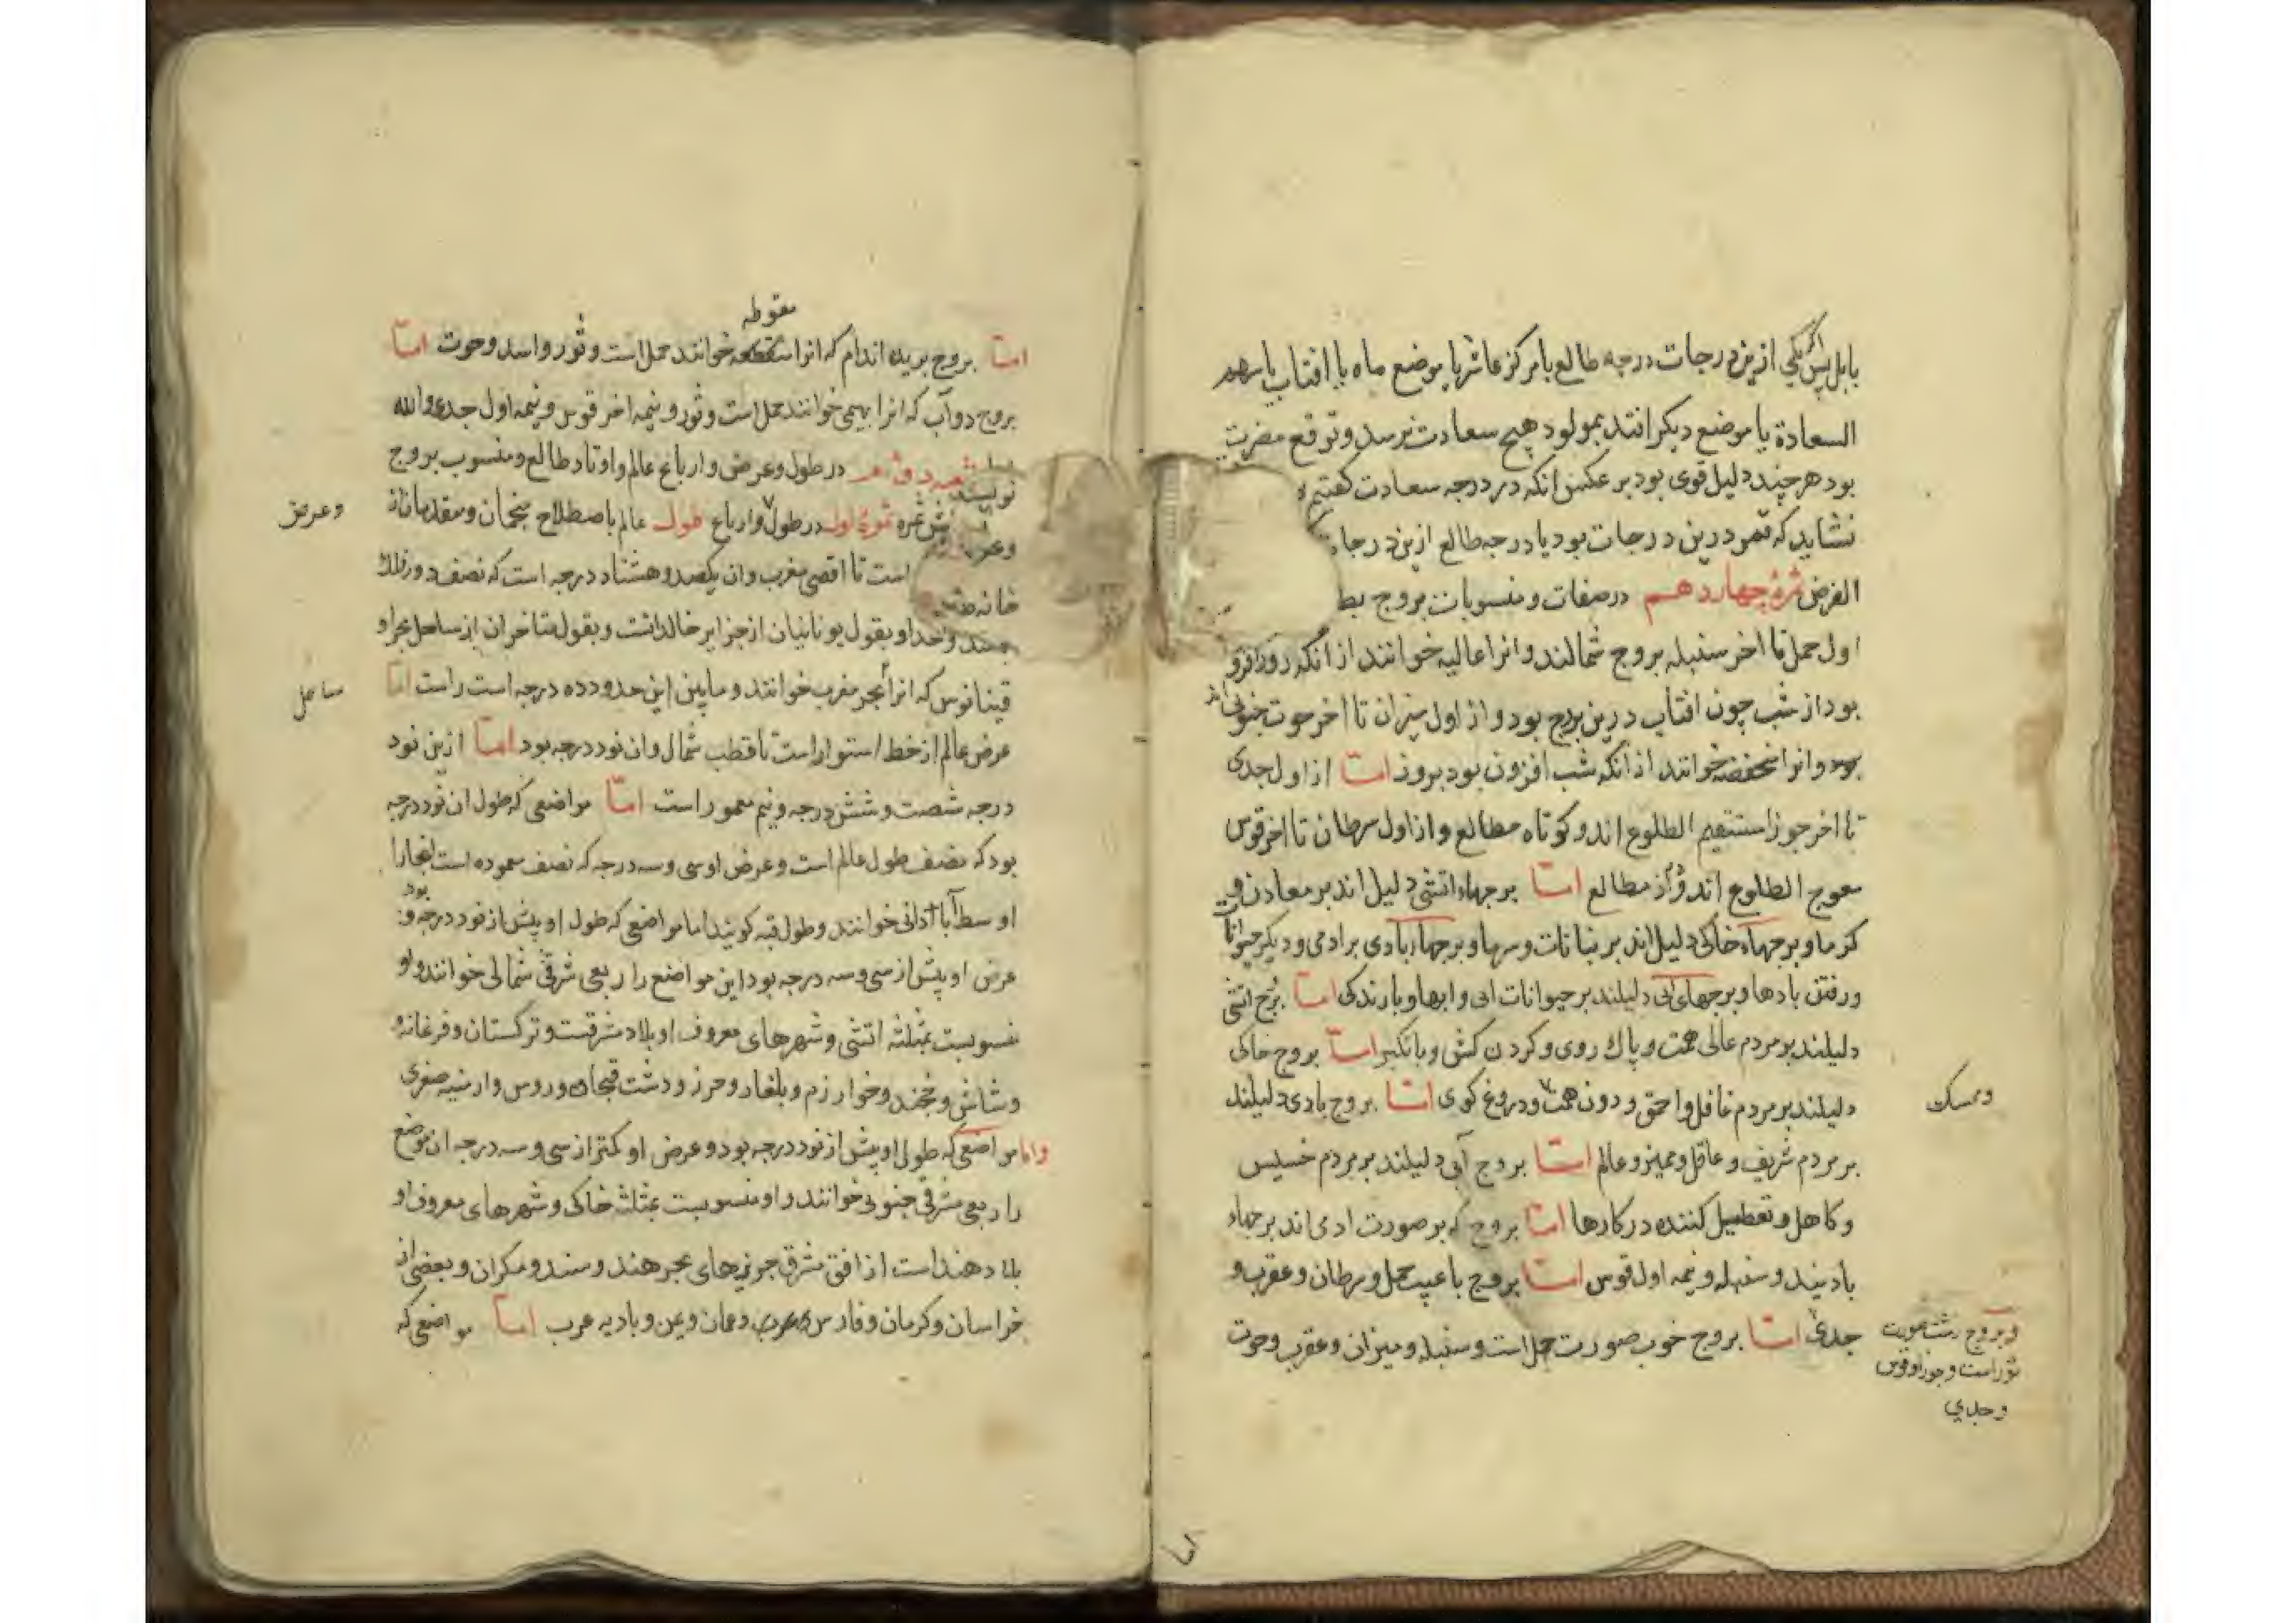 بابل پس اکر یکی ازین درجات درجه طالع یا مرکز عاشر یا موضع ماه یا افتاب یا سهم
السعادة یا موضع دیکر افتد بمولود هیچ سعادت نرسد و توقع مضرت
بود هرچند دلیل قوی بود بر عکس انکه در درجه سعادت کفتیم
نشاید که قمر درین درجات بود یا درجه طالع ازین درجا
الغرض ثمرۀ چهاردهم در صفات و منسوبات بروج
اول حمل تا اخر سنبله بروج شمالند و انرا عالیه خوانند از انکه روز افزو
بود از شب چون افتاب درین بروج بود و از اول میزان تا اخر حوت جنوبی
بود و انرا منخفضه خوانند از انکه شب افزون بود بروز امّا از اول جدی
تا اخر جوزا مستقیم الطلوع اند و کوتاه مطالع و از اول سرطان تا اخر قوس
معوج الطلوع اند و مطالع امّا برجهاء اتشی دلیل اند بر معادن و
کرما و برجهاء خاکی دلیل اند بر نباتات و سرما و برجهاء بادی بر ادمی و دیکر حیوانا
و رفتن بادها و برجهای ابی دلیلند بر حیوانات ابی و ابها و بارندکی امّا برج اتشی
دلیلند بر مردم عالی همت و پاک روی و کردن کش و با تکبر امّا بروج خاکی
دلیلند بر مردم غافل و احمق و دون همت و دروغ کوی امّا بروج بادی دلیلند
وممسک
بر مردم شریف و عاقل و ممیز و عالم امّا بروج آبی دلیلند بر مردم خسیس
و کاهل و تعطیل کننده در کارها امّا بروج که بر صورت ادمی اند برجهاء
بادیند و سنبله و نیمه اول قوس امّا بروج با عیب حمل و سرطان و عقرب و
جدی امّا بروج خوب صورت حمل است و سنبله و میزان و عقرب و حوت
و بروج زشت صورت
ثور است و جوزا و قوس
و جدی
مقوطه
امّا بروج بریده اندام که انرا خوانند حمل است و ثور و اسد و حوت امّا
بروج دوآب که انرا بهیمی خوانند حمل است و ثور و نیمه اخر قوس و نیمه اول جدی والله
در طول و عرض و ارباع عالم و اوتاد طالع و منسوب بروج
ثمره ثمرۀ اول در طول و ارباع طول عالم باصطلاح منجمان و متقدمان از
وعرض
است تا اقصی مغرب و ان یکصد و هشتاد درجه است که نصف دور فلک
خانه
واحد او بقول یونانیان از جزایر خالدانست و بقول متاخران از ساحل بحر او
قینانوس که انرا بحر مغرب خوانند و مابین این حدود ده درجه است راست امّا
ساحل
عرض عالم از خط استوا راست تا قطب شمال و ان نود درجه بود امّا ازین نود
درجه شصت و شش درجه و نیم معمور است امّا مواضعی که طول ان نود درجه
بود که نصف طول عالم است و عرض او سی و سه درجه که نصف معموره است انجا را
اوسط آبادانی خوانند و طول قبه کویند اما مواضعی که طول او پیش از نود درجه بود و
عرض او پیش از سی و سه درجه بود این مواضع را ربعی شرقی شمالی خوانند و او
منسوبست بمثلثه اتشی و شهرهای معروف او بلاد مشرقست و ترکستان و فرغانه و
و شاش و خجند و خوارزم و بلغار و خرز و دشت قبجاق و روس و ارمنیه صغری
و اما مواضعی که طول او پیش از نود درجه بود و عرض او کمتر از سی و سه درجه ان موضع
را ربعی شرقی جنوبی خوانند و او منسوبست بمثلثه خاکی و شهرهای معروف او
بلاد هند است از افق شرق جزیرهای بحر هند و سند و مکران و بعضی از
خراسان و کرمان و فارس و عمان و یمن و بادیه عرب امّا مواضعی که